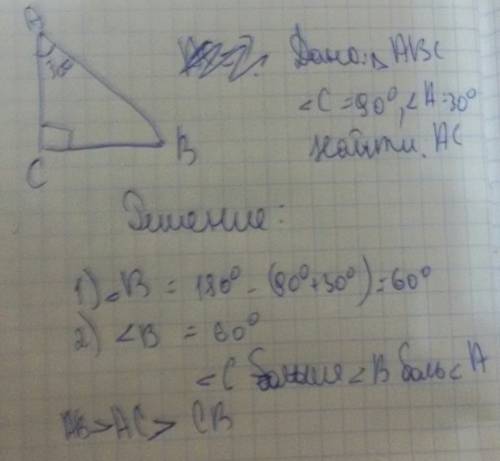 A
30
C
B
Дано: △ ABC
∠C = 90°, ∠A = 30°
Найти: AC
Решение:
1) ∠B = 180° - (90° + 30°) = 60°
2) ∠B = 60°
∠C больше ∠B боль ∠A
AB > AC > CB